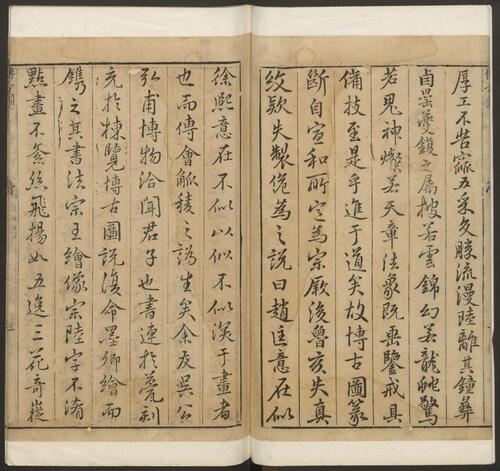 厚工不告竄五采文勝流漫陸離其鐘彝
卣罍夔鍑之屬披若雲錦幻若龍虵驚
若鬼神燦若天章法象既垂鑒戒具
備技至是乎進于道矣故博古圖篆
斷自宣和所定為宗厥後魯亥失真
紋欵失製佹為之說曰趙𠤎意在似
徐熙意在不似以似不似深于畫者
也而傅會觚稜之誚生矣余友吳公
弘甫博物洽聞君子也書連於甍刻
充於棟覽博古圖說復命墨卿繪而
鐫之其書法宗王繪像宗陸字不淆
點畫不紊絲飛揚如五逸三花奇嶔